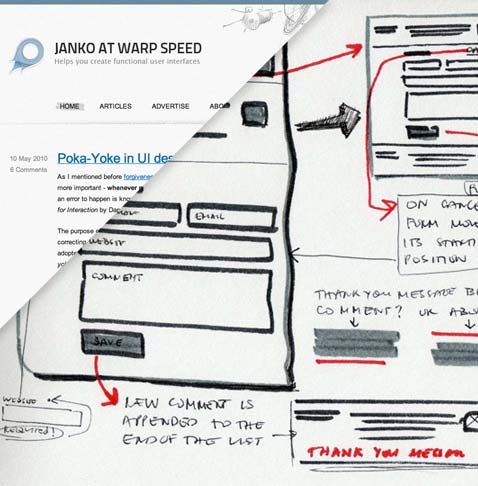 JANKO AT WARP SPEED
Helps you create functional user interfaces
HOME ARTICLES ADVERTISE
10 May 2010
6 Comments
Poka-Yoke in UI
As I mentioned before
more important - whenever
an error to happen is
for Interaction by
The purpose
correcting
EMAIL
WEBSITE
COMMENT
SAVE
NEW COMMENT IS
APPENDED TO THE
END OF THE LIST
WEBSITE
REQUIRED!
ON
FORM
ITS START
POSITION
THANK YOU MESSAGE
COMMENT? OR
THANK YOU